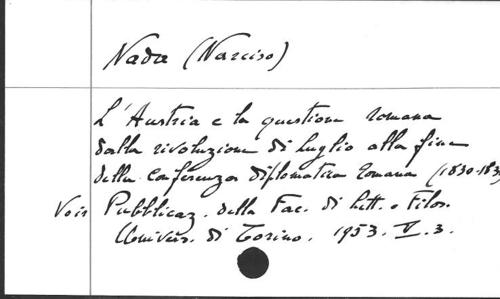 Nada (Narciso)
L'Austria e la questione romana
dalla rivoluzione di luglio alla fine
della conferenza diplomatica romana (1830-183
Voir Pubblicaz. della Fac. di Lett. e Filos.
Univers. di Torino. 1953. V. 3.